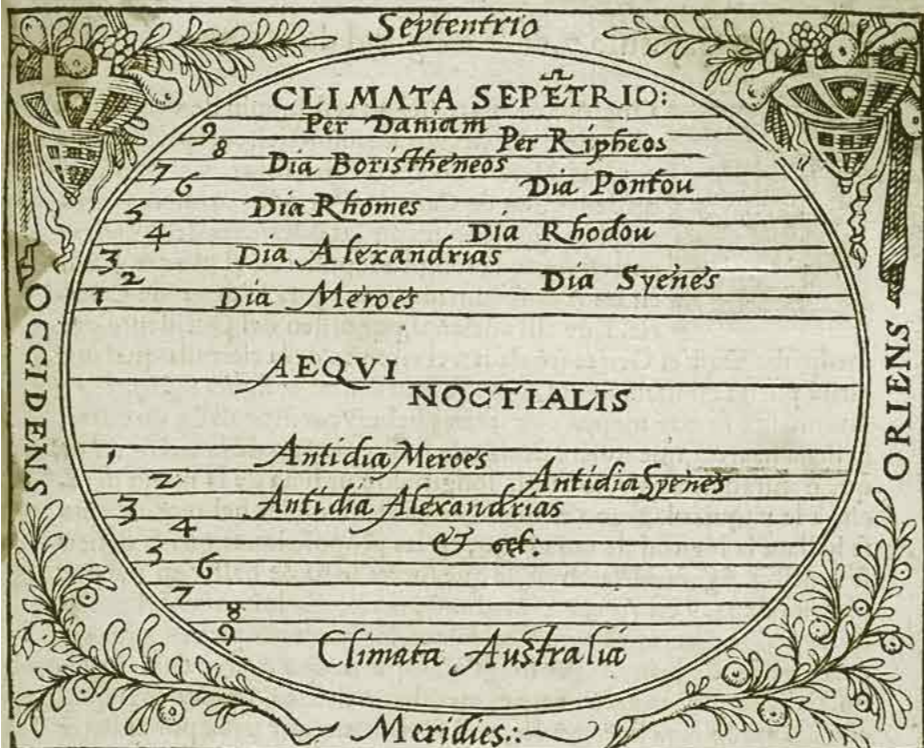 Septentrio
CLIMATA SEPĒTRIO:
9 Per Daniam
8 Per Ripheos
7 Dia Boristheneos
6 Dia Pontou
5 Dia Rhomes
4 Dia Rhodou
3 Dia Alexandrias
2 Dia Syenes
1 Dia Meroes
OCCIDENS
ORIENS
AEQVI
NOCTIALIS
1 Antidia Meroes
2 Antidia Syenes
3 Antidia Alexandrias
4
& cęt:
5
6
7
8
9
Climata Australia
Meridies.:.